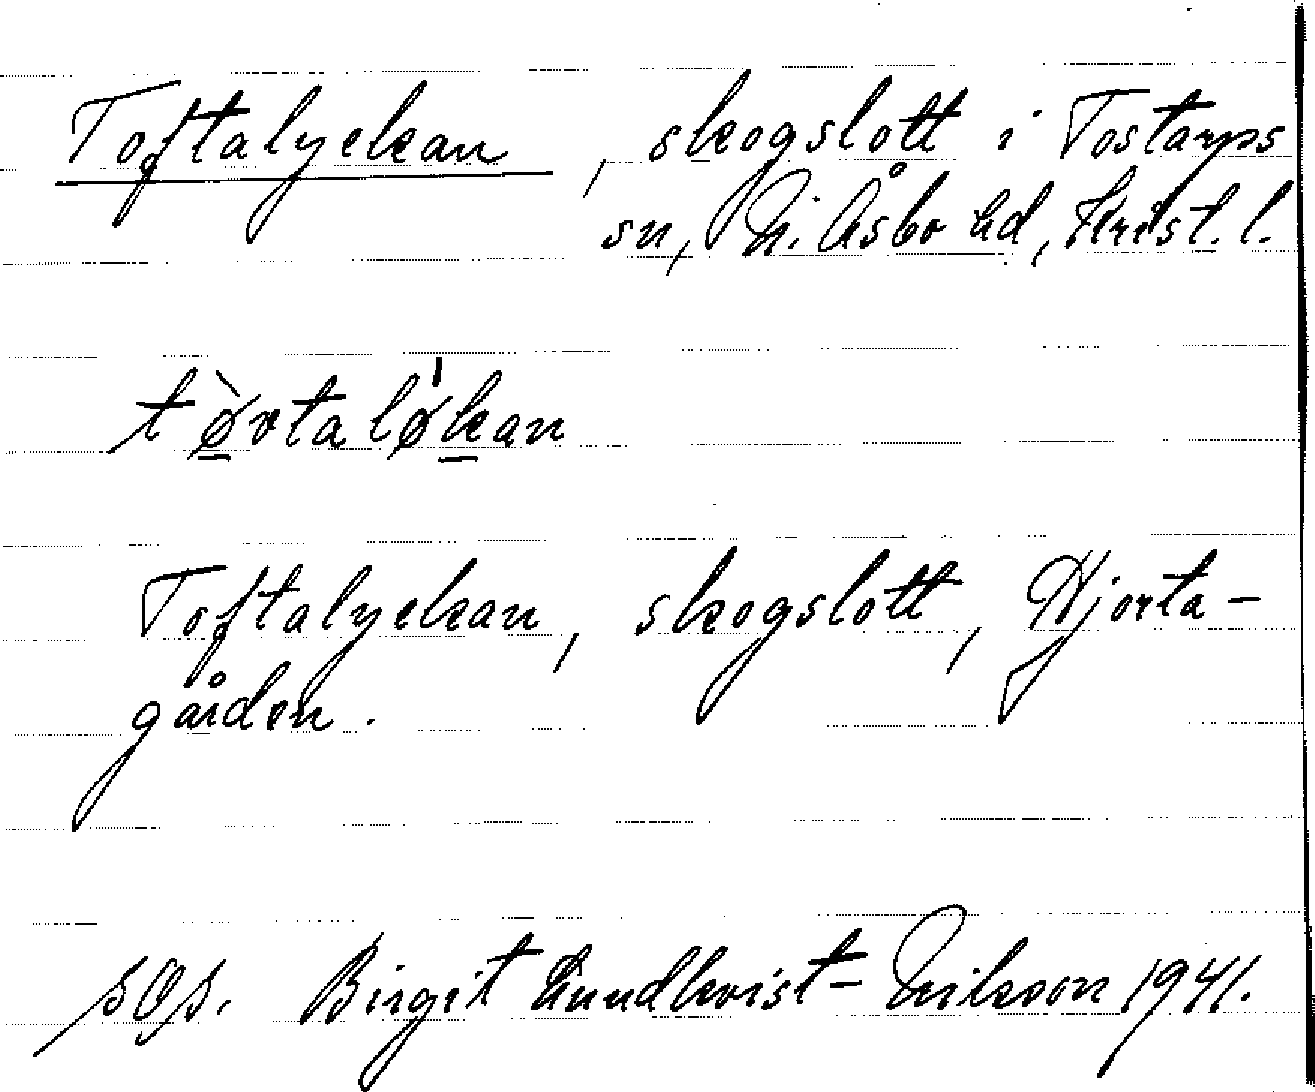 Toftalyckan, skogslott i Tostarps
sn, N. Åsbo hd, Krist. l.
tø̀vtalø̍kan
Toftalyckan, skogslott, Hjorta-
gården.
Birgit Lundkvist- 1941.